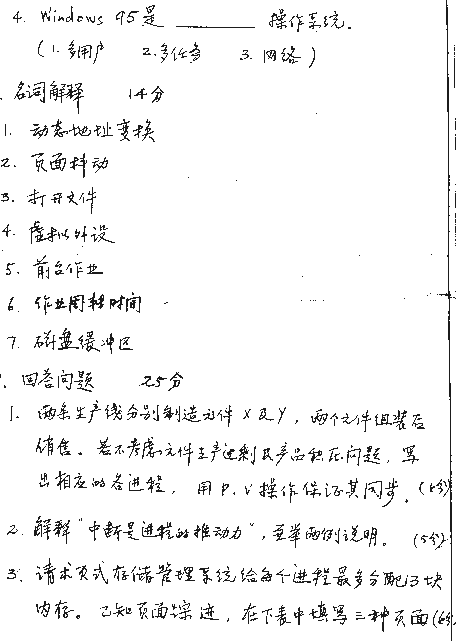 4. Windows 95是 ________ 操作系统.
(1. 多用户 2. 多任务 3. 网络)
名词解释 14分
1. 动态地址变换
2. 页面抖动
3. 打开文件
4. 虚拟外设
5. 前台作业
6. 作业周转时间
7. 磁盘缓冲区
回答问题 25分
1. 两条生产线分别制造元件X及Y, 两个元件组装后
销售。若不考虑元件生产过剩及产品积压问题, 写
出相应的各进程, 用P.V操作保证其同步.
2. 解释"中断是进程的推动力", 并举两例说明。 (5分)
3. 请求页式存储管理系统给每个进程最多分配3块
内存。已知页面踪迹, 在下表中填写三种页面(6分